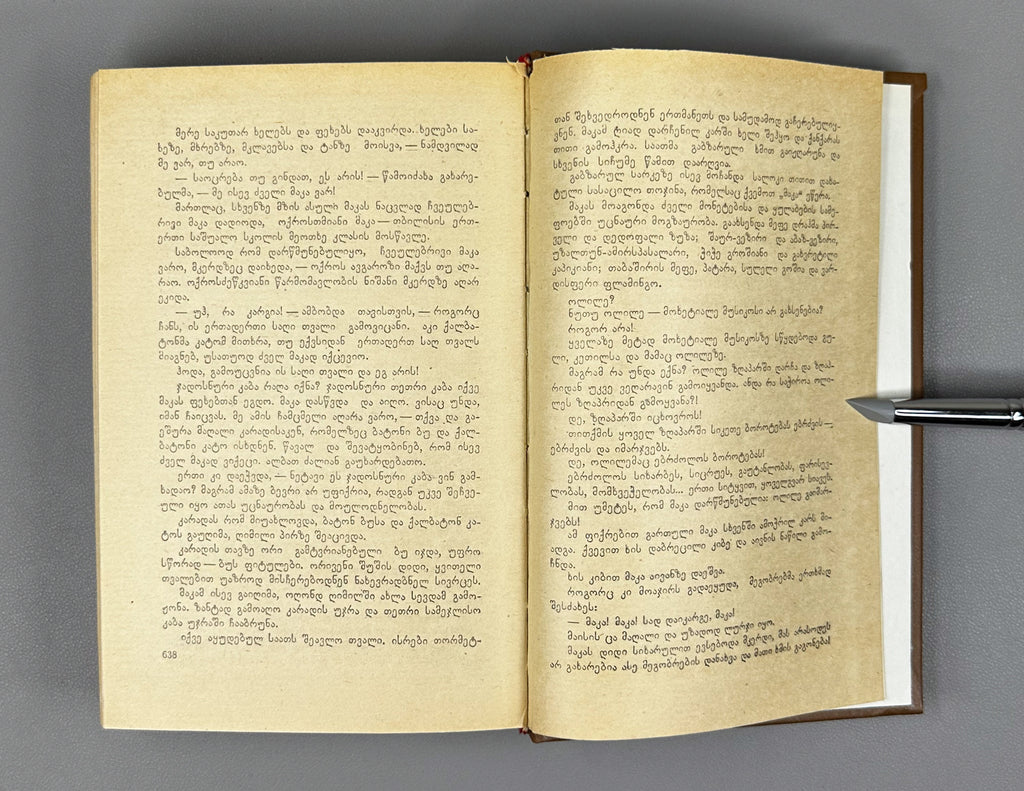 მერე საკუთარ ხელებს და ფეხებს დააკვირდა. ხელები სა-
ხეზე, მხრებზე, მკლავებსა და ტანზე მოისვა, — ნამდვილად
მე ვარ, თუ არაო.
— საოცრება თუ გინდათ, ეს არის! — წამოიძახა გახარე-
ბულმა, — მე ისევ ძველი მაკა ვარ!
მართლაც, სხვენზე მზის ასული მაკას ნაცვლად ჩვეულებ-
რივი მაკა დადიოდა, ოქროსთმიანი მაკა — თბილისის ერთ-
ერთი საშუალო სკოლის მეოთხე კლასის მოსწავლე.
საბოლოოდ რომ დარწმუნებულიყო, ჩვეულებრივი მაკა
ვარო, მკერდზეც დაიხედა, — ოქროს ავგაროზი მაქვს თუ აღა-
რაო. ოქროსძეწკვიანი წარმომავლობის ნიშანი მკერდზე აღარ
ეკიდა.
— უჰ, რა კარგია! — ამბობდა თავისთვის, — როგორც
ჩანს, ის ერთადერთი საღი თვალი გამოვიცანი. აკი ქალბა-
ტონმა კატომ მითხრა, თუ ექვსიდან ერთადერთ საღ თვალს
მიაგნებ, უსათუოდ ძველ მაკად იქცევიო.
ჰოდა, გამოუცვნია ის საღი თვალი და ეგ არის!
ჯადოსნური კაბა რაღა იქნა? ჯადოსნური თეთრი კაბა იქვე
მაკას ფეხებთან ეგდო. მაკა დასწვდა და აიღო. ვისაც უნდა,
იმან ჩაიცვას. მე ამის ჩამცმელი აღარა ვარო, — თქვა და გა-
ეშურა მაღალი კარადისაკენ, რომელზეც ბატონი ბუ და ქალ-
ბატონი კატო ისხდნენ. წავალ და შევატყობინებ, რომ ისევ
ძველ მაკად ვიქეცი. ალბათ ძალიან გაუხარდებათო.
ერთი კი დაეჭვდა, — ნეტავი ეს ჯადოსნური კაბა ვინ გამ-
ხადაო? მაგრამ ამაზე ბევრი არ უფიქრია, რადგან უკვე შეჩვე-
ული იყო ათას უცნაურობას და მოულოდნელობას.
კარადას რომ მიუახლოვდა, ბატონ ბუსა და ქალბატონ კა-
ტოს გაუღიმა, ღიმილი პირზე შეაცივდა.
კარადის თავზე ორი გამტვრიანებული ბუ იჯდა, უფრო
სწორად — ბუს ფიტულები. ორივენი შუშის დიდი, ყვითელი
თვალებით უაზროდ მისჩერებოდნენ ნახევრადბნელ სივრცეს.
მაკამ ისევ გაიღიმა, ოღონდ ღიმილში ახლა სევდამ გამო-
ჟონა. ზანტად გამოაღო კარადის უჯრა და თეთრი სამეჯლისო
კაბა უჯრაში ჩააბრუნა.
იქვე აყუდებულ საათს შეავლო თვალი. ისრები თორმეტ-
638
თან შეხვედროდნენ ერთმანეთს და სამუდამოდ გაჩერებულიყ-
ვნენ. მაკამ ღიად დარჩენილ კარში ხელი შეჰყო და ქანქარას
თითი გამოჰკრა. საათმა გაბზარული ხმით გაიჟღარუნა და
სხვენის სიჩუმე წამით დაარღვია.
გაბზარულ სარკეზე ისევ მოჩანდა სალოკი თითით დახა-
ტული სასაცილო თოჯინა, რომელსაც ქვემოთ „მაკა“ ეწერა.
მაკას მოაგონდა ძველი მონეტებისა და ყულაბების სამე-
ფოებში უცნაური მოგზაურობა. გაახსენდა მეფე დრაჰმა პირ-
ველი და დედოფალი ზუზა; შაურ-ვეზირი და აბაზ-ვეზირი,
უზალთუნ-ამირსპასალარი, ჭიჭე გროშიანი და გახვრეტილი
კაპიკიანი; თაბაშირის მეფე, პატარა, სულელი გოში და ვარ-
დისფერი ფლამინგო.
ოლილე?
ნუთუ ოლილე — მოხეტიალე მუსიკოსი არ გახსენებია?
როგორ არა!
ყველაზე მეტად მოხეტიალე მუსიკოსზე სწყდებოდა გუ-
ლი, კეთილსა და მამაც ოლილეზე.
მაგრამ რა უნდა ექნა? ოლილე ზღაპარში დარჩა და ზღაპ-
რიდან უკვე ვეღარავინ გამოიყვანდა. ანდა რა საჭიროა ოლი-
ლეს ზღაპრიდან გემოყვანა?!
დე, ზღაპარში იცხოვროს!
თითქმის ყოველ ზღაპარში სიკეთე ბოროტებას ებრძვის —
ებრძვის და იმარჯვებს.
დე, ოლილემაც ებრძოლოს ბოროტებას!
ებრძოლოს სიხარბეს, სიცრუეს, გაუტანლობას, ფარისევ-
ლობას, მომხვეჭელობას... ერთი სიტყვით, ყოველგვარ სიავეს.
მით უმეტეს, რომ მაკა დარწმუნებულია: ოლილე გაიმარ-
ჯვებს!
ამ ფიქრებით გართული მაკა სხვენში ამოჭრილ კარს მი-
ადგა. ქვევით ხის დაბრეცილი კიბე და აივნის ნაწილი გამო-
ჩნდა.
ხის კიბით მაკა აივანზე დაეშვა.
როგორც კი მოაჯირს გადაეყუდა, მეგობრებმა ერთხმად
შესძახეს:
— მაკა! მაკა! სად დაიკარგე, მაკა!
მაისის ცა მაღალი და უზადოდ ლურჯი იყო.
მაკას დიდი სიხარულით ევსებოდა მკერდი, მას არასოდეს
არ გახარებია ასე მეგობრების დანახვა და მათი ხმის გაგონება!